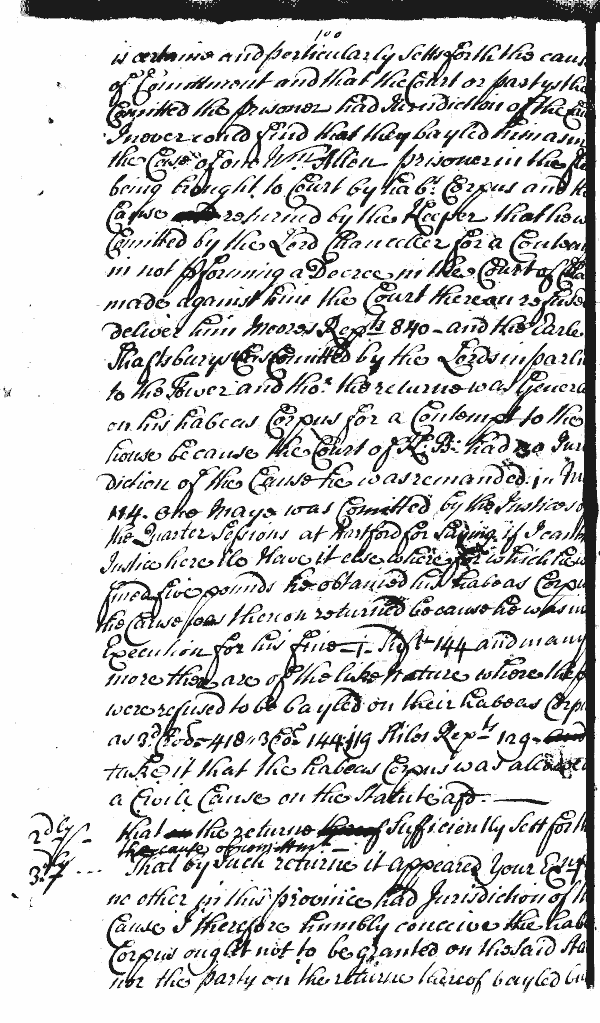 100
is certaine and particularly setts forth the caus
of Comittment and that the Court or partys the
Comitted the prisoner had Jurisdiction of the Cau
I never could find that they bayled him as in
the Case of one Wm. Allen prisoner in the
being brought to Court by habs. Corpus and the
Cause returned by the Keeper that he w
Comitted by the Lord Chancellor for a Contem
in not pforming a Decree in the Court of Cha
made against him the Court thereon refused
deliver him Moores Repts 840 - and the Earle
Shaftsbury was Comitted by the Lords in parli
to the Tower and tho: the returne was Genera
on his habeas Corpus for a Contempt to the
house because the Court of K: B: had no Juris
diction of the Cause he was remanded in M
114. one Mayo was Comitted by the Justices o
the Quarter Sessions at Hartford for saying if I cann
Justice here Ile have it else where for which he w
fined five pounds he obtained his habeas Corpu
the Cause was thereon returned because he was in
Execution for his fine 144 and many
more there are of the like Nature where the p
were refused to be bayled on their habeas Corp
as 3d. 418 - 3 144 119 Stiles Repts 129 -
take it that the habeas Corpus was allowed
a Civile Cause on the Statute afd. —
2dly that the returne Sufficiently sett forth
the cause of comittmt. —
3dly That by such returne it appeared Your
no other in this province had Jurisdiction of th
Cause I therefore humbly conceive the hab
Corpus ought not to be granted on the said Sta
nor the party on the returne thereof bayled